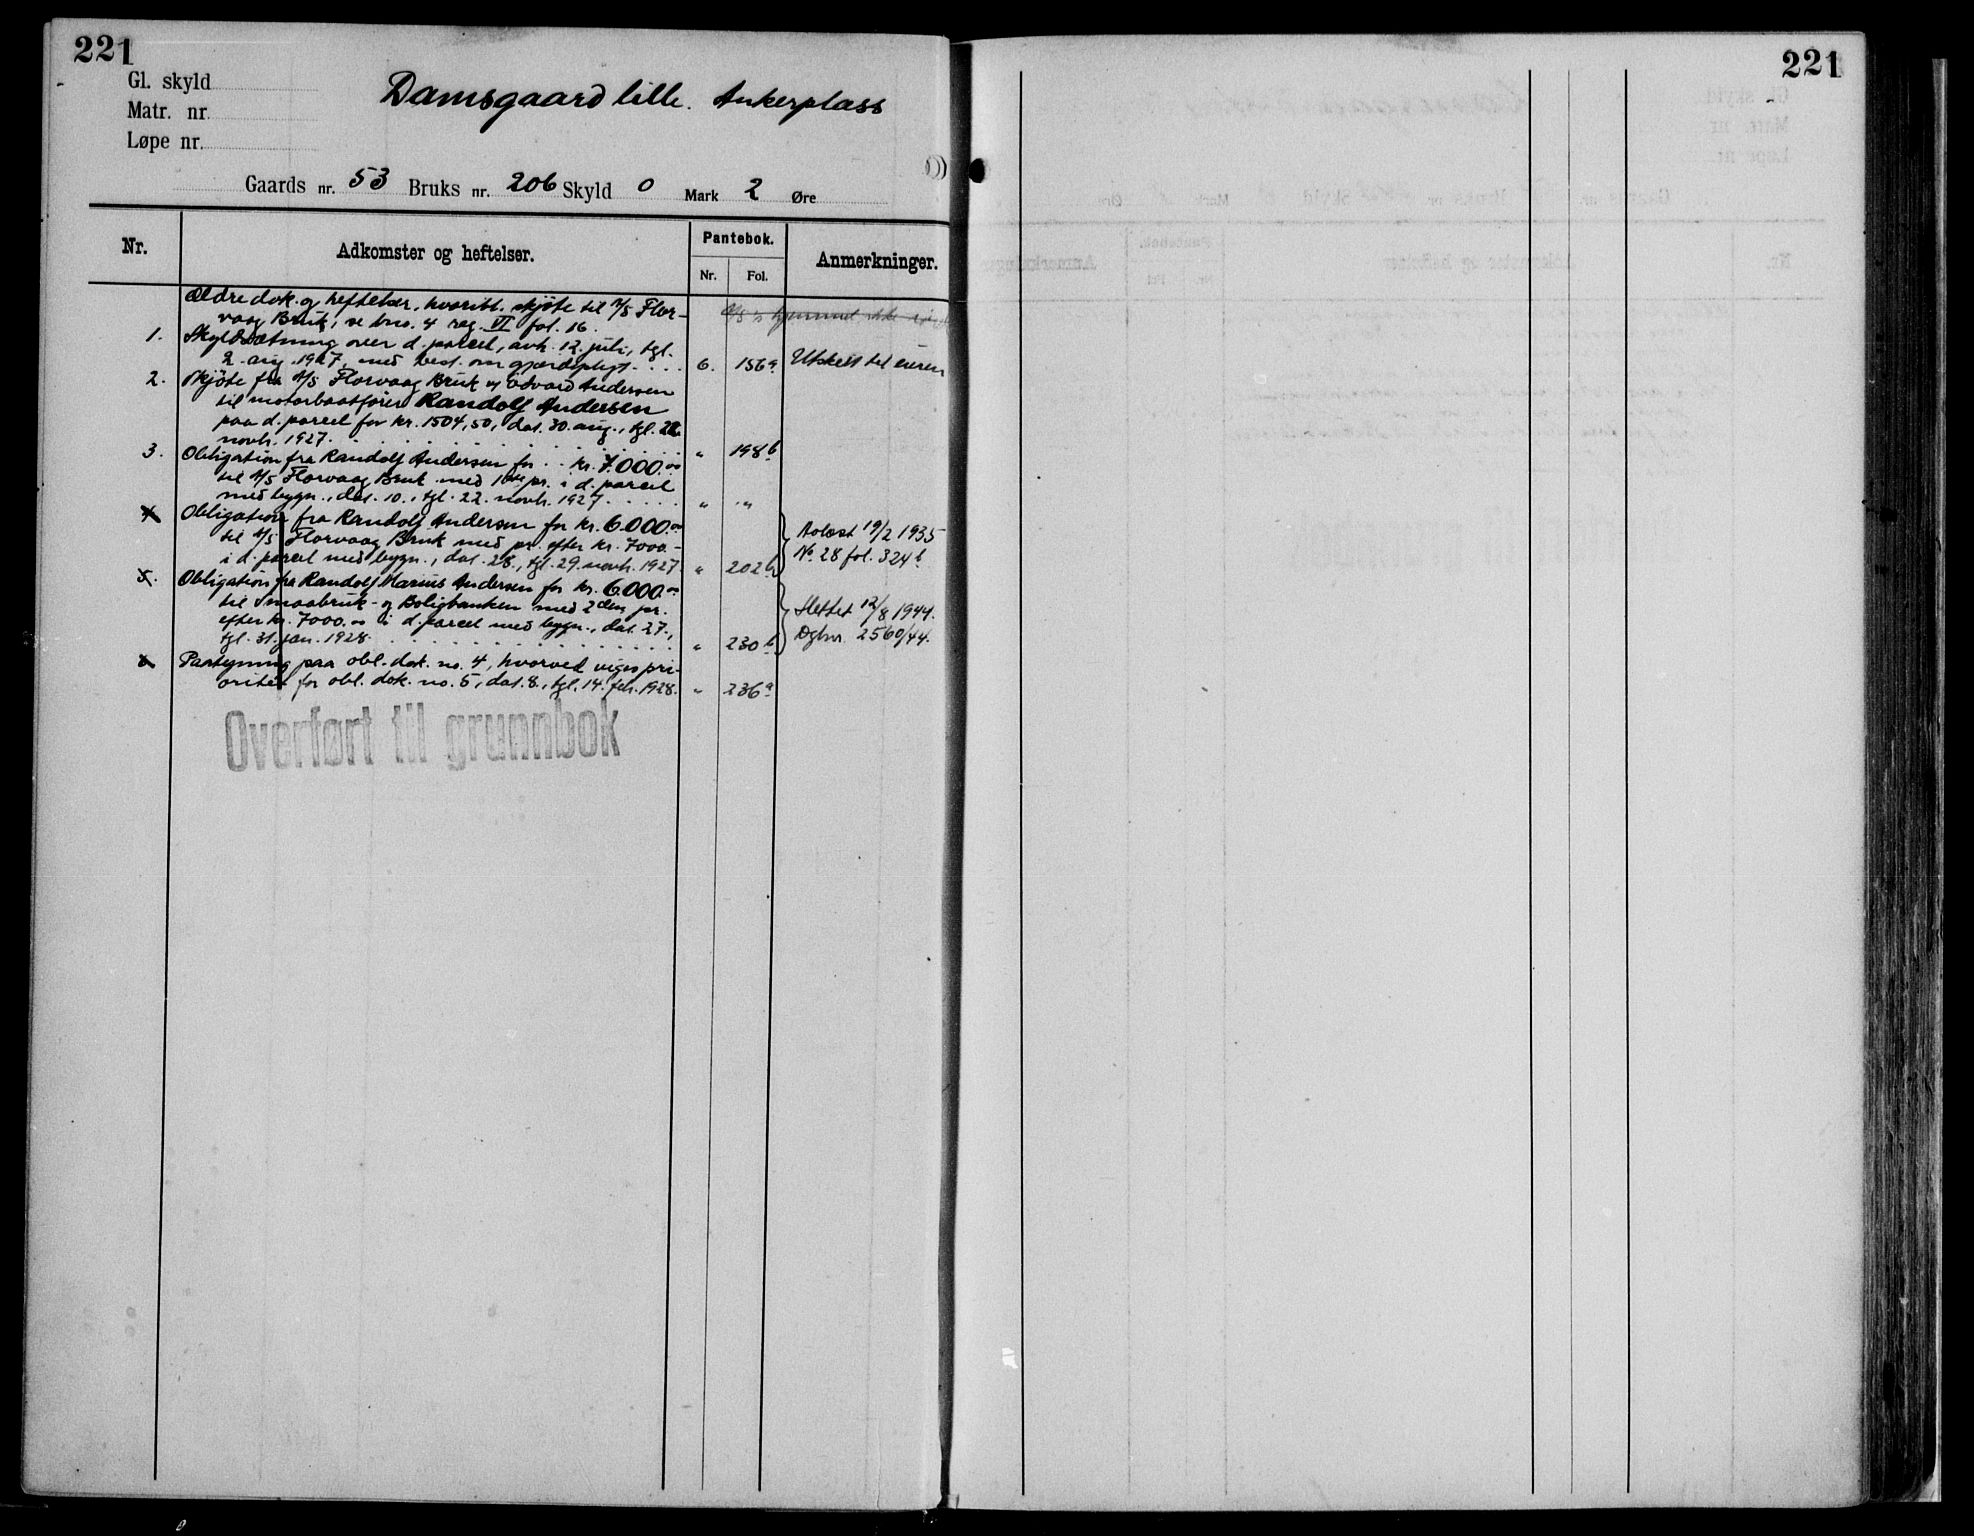 221
221
Gl. skyld
Matr. nr.
Løpe nr.
Damsgaard lille. Ankerplass
Gaards nr. 53 Bruks nr. 206 Skyld 0 Mark 2 Øre
Nr. Adkomster og heftelser. Pantebok. Anmerkninger.
Nr. Fol.
Ældre dok. og heftelser, hvoribl. skjøte til A/S Flor-
vaag Bruk, se bno. 4 reg. VI fol. 16.
1. Skyldsætning over d. parcel, avh. 12. juli, tgl.
2. aug. 1927, med best. om gjærdepligt. 6. 156a Utskilt til
2. Skjøte fra A/S Florvaag Bruk og Edvard Andersen
til motorbaatfører Randolf Andersen
paa d. parcel for kr. 1504,50, dat. 30. aug., tgl. 22.
novb. 1927. " 198b
3. Obligation fra Randolf Andersen for kr. 7.000.00
til A/S Florvaag Bruk med 1ste pr. i d. parcel
med bygn., dat. 10., tgl. 22. novb. 1927. " "
4. Obligation fra Randolf Andersen for kr. 6.000.00
til A/S Florvaag Bruk med pr. efter kr. 7000.-
i d. parcel med bygn., dat. 28., tgl. 29. novb. 1927 " 202b
Avlæst 19/2 1935
No 28 fol. 324b
5. Obligation fra Randolf Marius Andersen for kr. 6.000.00
til Smaabruk- og Boligbanken med 2den pr.
efter kr. 7000.00 i d. parcel med bygn., dat. 27.,
tgl. 31. jan. 1928. " 230b
Slettet 12/8 1944.
Dgbnr. 2560/44.
6 Paategning paa obl. dok. no. 4, hvorved viges pri-
oritet for obl. dok. no. 5, dat. 8., tgl. 14. feb. 1928. " 236a
Overført til grunnbok